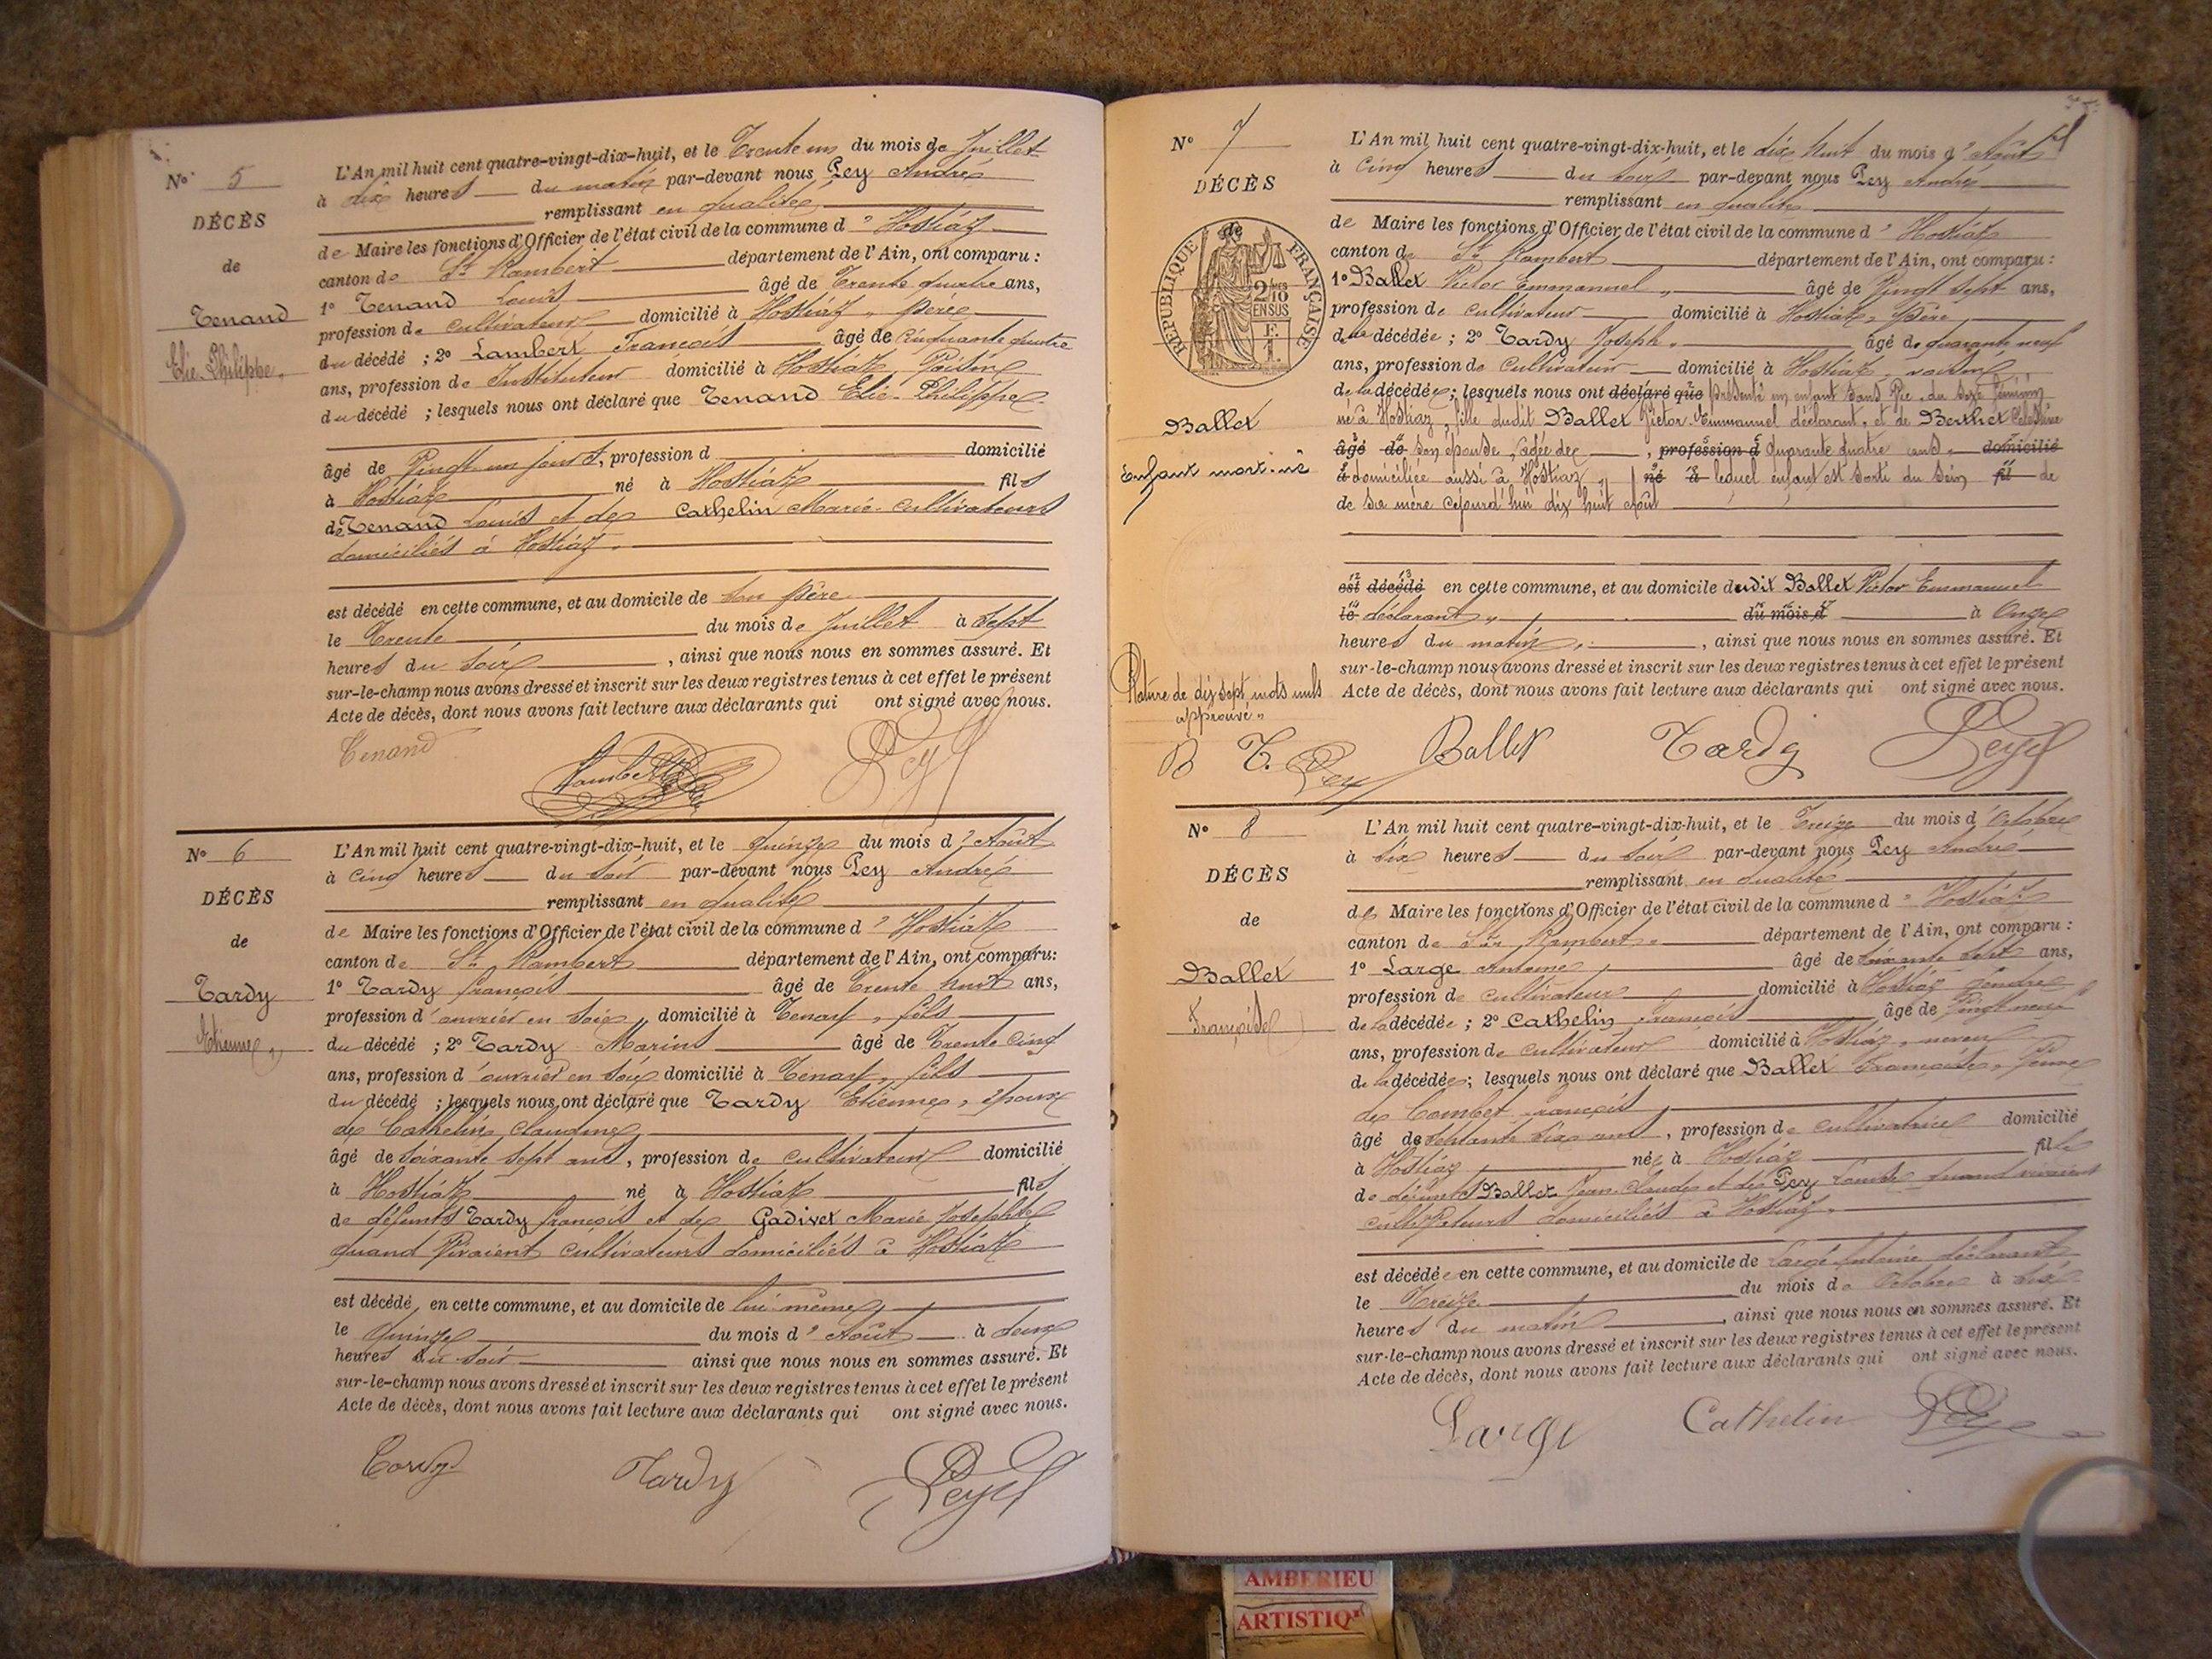 N° 5
DÉCÈS
de
Tenand
Elie Philippe
L'An mil huit cent quatre-vingt-dix-huit, et le Trente un du mois de Juillet
à dix heures du matin par-devant nous Pey André
remplissant en qualité
de Maire les fonctions d'Officier de l'état civil de la commune d'Hostiaz
canton de St Rambert département de l'Ain, ont comparu :
1° Tenand Louis âgé de Trente quatre ans,
profession de cultivateur domicilié à Hostiaz, père
du décédé ; 2° Lambert François âgé de Cinquante quatre
ans, profession de Instituteur domicilié à Hostiaz, Voisin
du décédé ; lesquels nous ont déclaré que Tenand Elie-Philippe
âgé de Vingt un jours, profession d domicilié
à Hostiaz né à Hostiaz fils
de Tenand Louis et de Cathelin Marie cultivateurs
domiciliés à Hostiaz.
est décédé en cette commune, et au domicile de son père
le Trente du mois de Juillet à Sept
heures du soir, ainsi que nous nous en sommes assuré. Et
sur-le-champ nous avons dressé et inscrit sur les deux registres tenus à cet effet le présent
Acte de décès, dont nous avons fait lecture aux déclarants qui ont signé avec nous.
Tenand Lambert Pey
N° 6
DÉCÈS
de
Tardy
Etienne
L'An mil huit cent quatre-vingt-dix-huit, et le quinze du mois d'Août
à Cinq heures du soir par-devant nous Pey André
remplissant en qualité
de Maire les fonctions d'Officier de l'état civil de la commune d'Hostiaz
canton de St Rambert département de l'Ain, ont comparu:
1° Tardy françois âgé de Trente huit ans,
profession d'ouvrier en soie, domicilié à Tenay, fils
du décédé ; 2° Tardy Marius âgé de Trente Cinq
ans, profession d'ouvrier en soie domicilié à Tenay, fils
du décédé ; lesquels nous ont déclaré que Tardy Etienne, époux
de Cathelin Claudine
âgé de soixante sept ans, profession de cultivateur domicilié
à Hostiaz né à Hostiaz fils
de défunts Tardy françois et de Gadivet Marie Josephte
quand Vivaient cultivateurs domiciliés à Hostiaz
est décédé, en cette commune, et au domicile de lui-même,
le quinze du mois d'Août à deux
heures du soir ainsi que nous nous en sommes assuré. Et
sur-le-champ nous avons dressé et inscrit sur les deux registres tenus à cet effet le présent
Acte de décès, dont nous avons fait lecture aux déclarants qui ont signé avec nous.
Tardy Tardy Pey
N° 7
DÉCÈS
de
RÉPUBLIQUE FRANÇAISE
2/10 EN SUS
Ballet
Enfant mort-né
L'An mil huit cent quatre-vingt-dix-huit, et le dix huit du mois d'Août
à Cinq heures du soir par-devant nous Pey André
remplissant en qualité
de Maire les fonctions d'Officier de l'état civil de la commune d'Hostiaz
canton de St Rambert département de l'Ain, ont comparu :
1° Ballet Victor Emmanuel, âgé de Vingt sept ans,
profession de cultivateur domicilié à Hostiaz, père
de la décédée ; 2° Tardy Joseph, âgé de quarante neuf
ans, profession de Cultivateur domicilié à Hostiaz, voisin
de la décédée ; lesquels nous ont déclaré que présenté un enfant sans Vie, du sexe féminin
né à Hostiaz, fille dudit Ballet Victor Emmanuel déclarant, et de Berthet
âgé de son épouse, âgée de, profession d quarante quatre ans, domicilié
à domiciliée aussi à Hostiaz né à lequel enfant est sorti du sein fil de
de sa mère cejourd'hui dix huit Août
est décédé en cette commune, et au domicile dudit Ballet Victor Emmanuel
le déclarant, du mois d à Onze
heures du matin, ainsi que nous nous en sommes assuré. Et
sur-le-champ nous avons dressé et inscrit sur les deux registres tenus à cet effet le présent
Acte de décès, dont nous avons fait lecture aux déclarants qui ont signé avec nous.
Rature de dix sept mots nuls
approuvé
B T. Pey Ballet Tardy Pey
N° 8
DÉCÈS
de
Ballet
Françoise
L'An mil huit cent quatre-vingt-dix-huit, et le Treize du mois d'Octobre
à six heures du soir par-devant nous Pey André
remplissant en qualité
de Maire les fonctions d'Officier de l'état civil de la commune d'Hostiaz
canton de St Rambert département de l'Ain, ont comparu :
1° Large Antoine âgé de ans,
profession de cultivateur domicilié à Hostiaz gendre
de la décédée ; 2° Cathelin françois âgé de Vingt neuf
ans, profession de cultivateur domicilié à Hostiaz, neveu
de la décédée ; lesquels nous ont déclaré que Ballet Françoise, Veuve
de Combet françois
âgé de septante six ans, profession de cultivatrice domicilié
à Hostiaz née à Hostiaz fille
de défunts Ballet Jean Claude et de Pey Louise quand vivaient
cultivateurs domiciliés à Hostiaz.
est décédée en cette commune, et au domicile de Large Antoine déclarant
le Treize du mois de Octobre à six
heures du matin, ainsi que nous nous en sommes assuré. Et
sur-le-champ nous avons dressé et inscrit sur les deux registres tenus à cet effet le présent
Acte de décès, dont nous avons fait lecture aux déclarants qui ont signé avec nous.
Large Cathelin Pey
AMBERIEU
ARTISTIQ